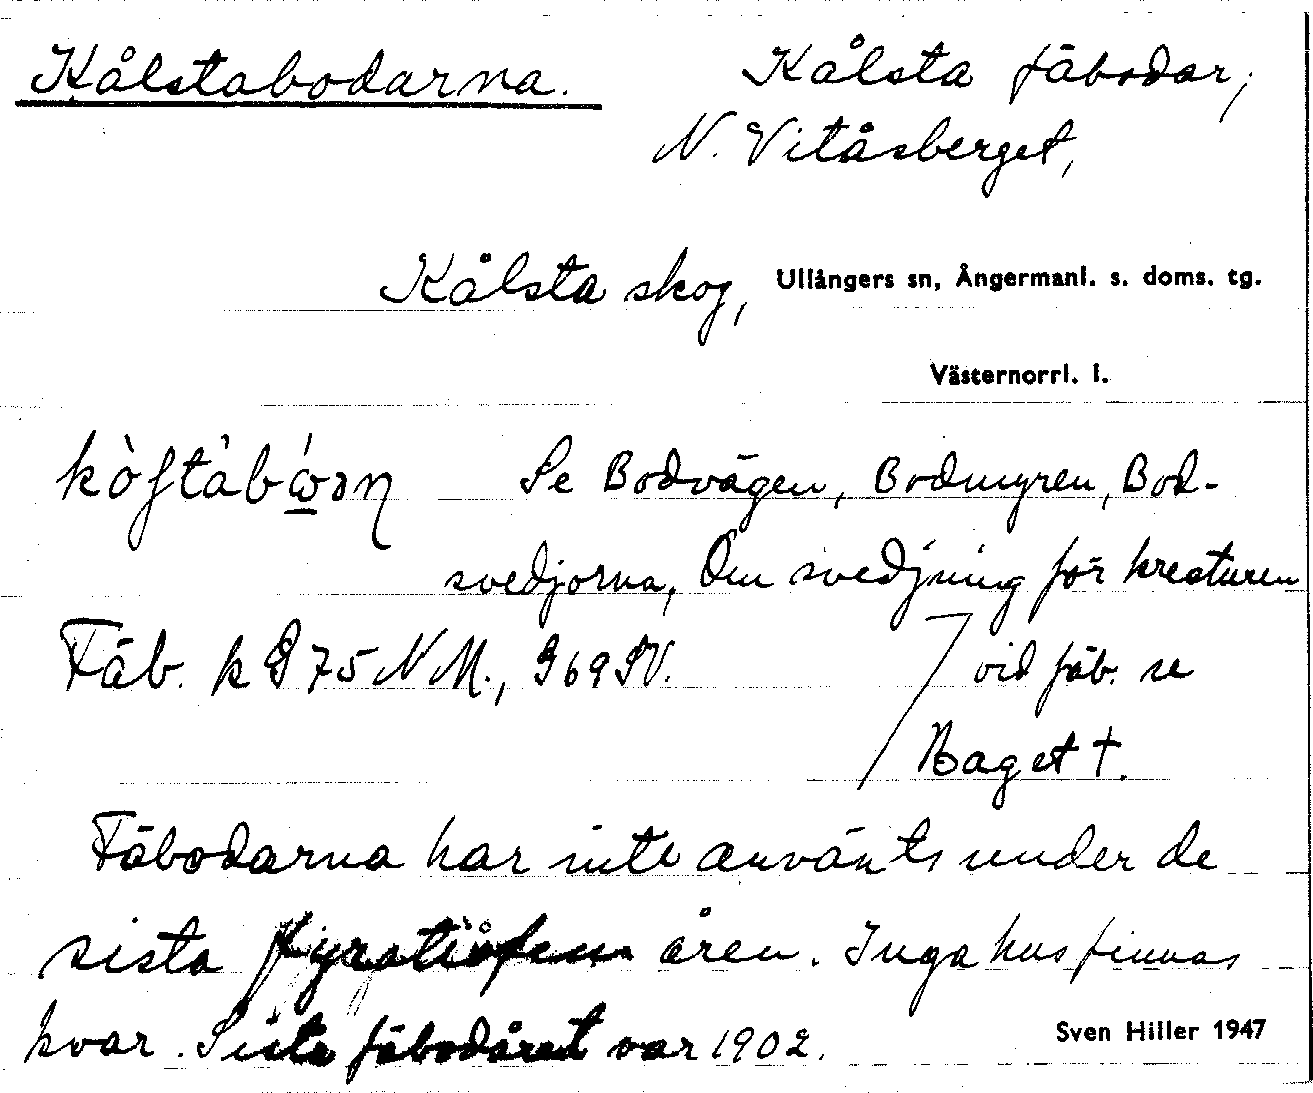 Kålstabodarna.
Kålsta fäbodar,
N. Vitåsberget,
Kålsta skog, Ullångers sn, Ångermanl. s. doms. tg.
Västernorrl. l.
Se Bodvägen, Bodmyren, Bod-
svedjorna, Om svedjning för kreaturen
Fäb. k 75 NM., 969 SV. vid fäb. se
Baget †.
Fäbodarna har inte använts under de
sista fyratiofem åren. Inga hus finnas
kvar. Sista fäbodåret var 1902.
Sven Hiller 1947